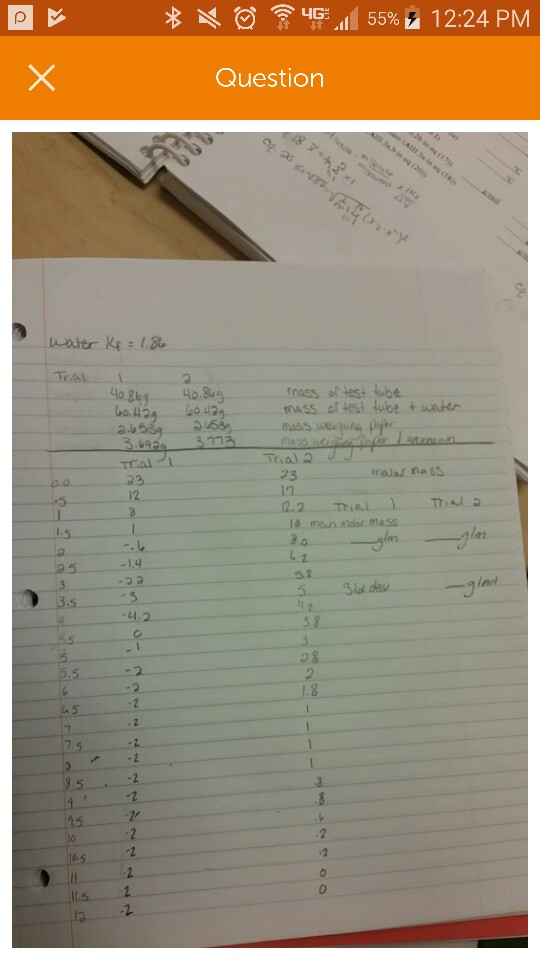 4G LTE 55% 12:24 PM
Question
water Kf = 1.86
Trial 1 2
40.86g 40.86g mass of test tube
60.42g 60.42g mass of test tube + water
2.653g 2.653g mass weighing paper
3.692g 3.773 mass weighing paper + unknown
Trial 1 Trial 2
0.0 23 23 molar mass
.5 12 17
1 8 12.2 Trial 1 Trial 2
1.5 1 10 mean molar mass
2 -.6 8.0 __g/m __g/m
2.5 -1.4 6.2
3 -2.2 5.2
3.5 -3 5 std dev __g/mol
4 -4.2 4.2
4.5 0 3.8
5 -1 3
5.5 -2 2.8
6 -2 2
6.5 -2 1.8
7 -2 1
7.5 -2 1
8 -2 1
8.5 -2 1
9 -2 .8
9.5 -2 .8
10 -2 .6
10.5 -2 .2
11 -2 .2
11.5 -2 0
12 -2 0